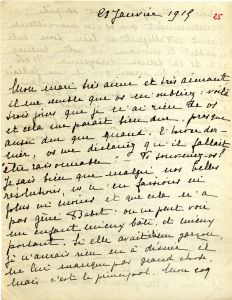 23 Janvier 1915
25
Mon mari très aimé et très aimant
il me semble que vs m'oubliez : voilà
trois jours que je n'ai rien de vs
et cela me paraît bien dur, presque
aussi dur que quand, l'hiver der-
nier, vs me déclariez qu'il fallait
être raisonnable ! Te souvenez-vs ?
Je sais bien que malgré nos belles
résolutions, ns n'en faisions ni
plus ni moins et que cela n'a
pas gêné Babet : on ne peut voir
un enfant mieux bâti et mieux
portant. Si elle avait été un garçon,
je n'aurais rien eu à désirer et
ne lui manque pas grand chose
mais c'est le principal. Mon coq